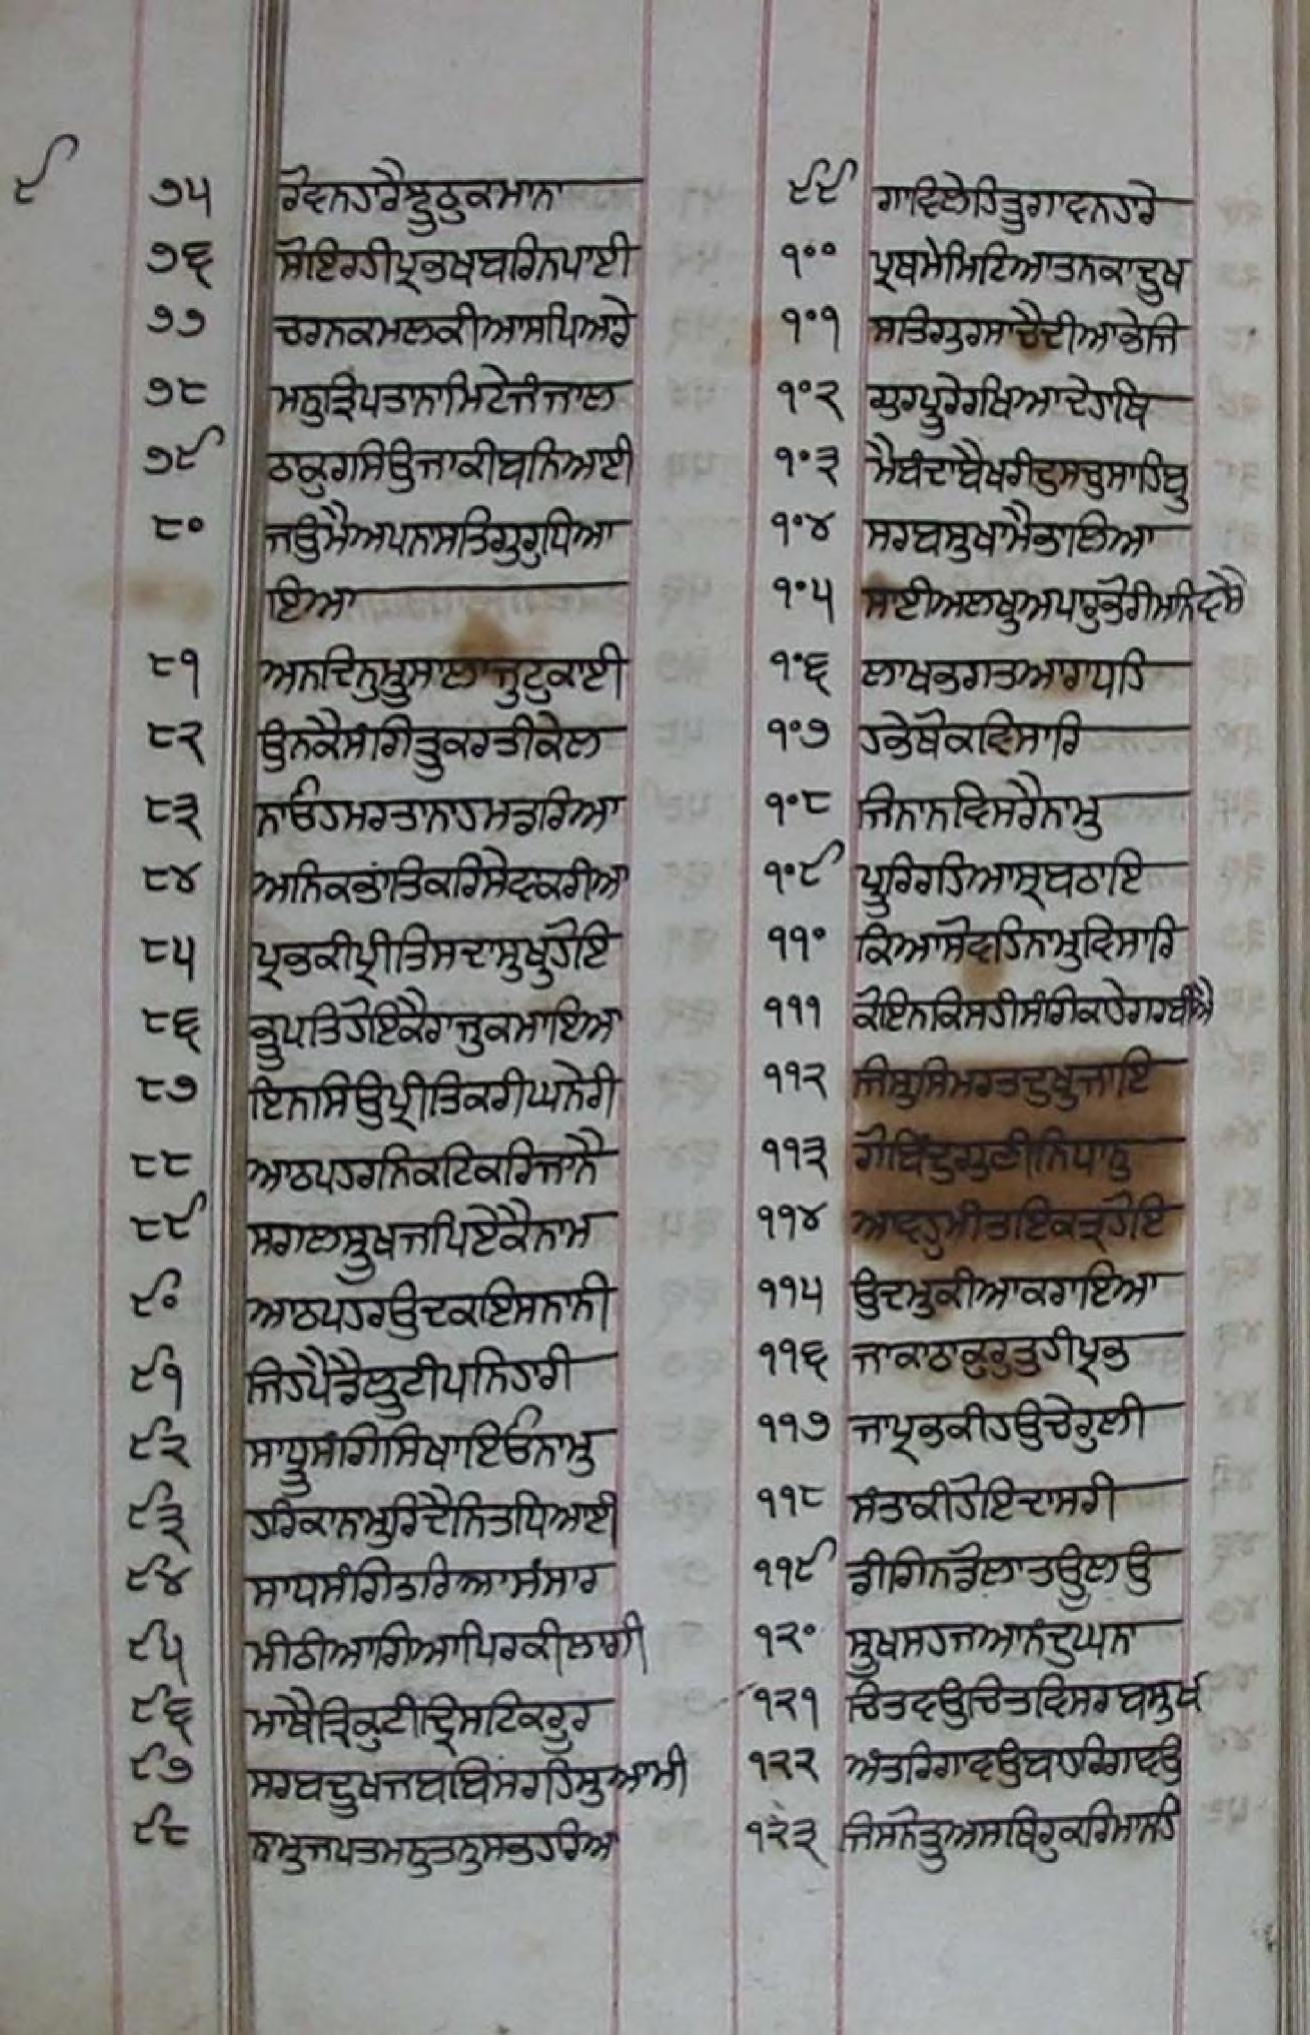 ੯
੭੫ ਰੋਵਨਹਾਰੈਝੂਠੁਕਮਾਨਾ
੭੬ ਸੋਇਰਹੀਪ੍ਰਭਖਬਰਿਨਪਾਈ
੭੭ ਚਰਨਕਮਲਕੀਆਸਪਿਆਰੇ
੭੮ ਮਨੁਤ੍ਰਿਪਤਾਨਾਮਿਟੇਜੰਜਾਲ
੭੯ ਠਾਕੁਰਸਿਉਜਾਕੀਬਨਿਆਈ
੮੦ ਜਉਮੈਅਪਨਾਸਤਿਗੁਰੁਧਿਆ
ਇਆ
੮੧ ਅਨਦਿਨੁਮੂਸਾਲਾਜੁਟੁਕਾਈ
੮੨ ਉਨਕੈਸੰਗਿਤੂਕਰਤੀਕੇਲ
੮੩ ਨਾਓਹੁਮਰਤਾਨਾਹਮਡਰਿਆ
੮੪ ਅਨਿਕਭਾਂਤਿਕਰਿਸੇਵਾਕਰੀਐ
੮੫ ਪ੍ਰਭਕੀਪ੍ਰੀਤਿਸਦਾਸੁਖੁਹੋਇ
੮੬ ਭੂਪਤਿਹੋਇਕੈਰਾਜੁਕਮਾਇਆ
੮੭ ਇਨਸਿਉਪ੍ਰੀਤਿਕਰੀਘਨੇਰੀ
੮੮ ਆਠਪਹਰਨਿਕਟਿਕਰਿਜਾਨੈ
੮੯ ਸਗਲਸੂਖਜਪਿਏਕੈਨਾਮ
੯੦ ਆਠਪਹਰਉਦਕਇਸਨਾਨੀ
੯੧ ਜਿਹਪੈਡੈਲੂਟੀਪਨਿਹਾਰੀ
੯੨ ਸਾਧੂਸੰਗਿਸਿਖਾਇਓਨਾਮੁ
੯੩ ਹਰਿਕਾਨਾਮੁਰਿਦੈਨਿਤਧਿਆਈ
੯੪ ਸਾਧਸੰਗਿਤਰਿਆਸੰਸਾਰ
੯੫ ਮੀਠੀਆਗਿਆਪਿਰਕੀਲਾਗੀ
੯੬ ਮਾਥੈਤ੍ਰਿਕੁਟੀਦ੍ਰਿਸਟਿਕਰੂਰ
੯੭ ਸਰਬਦੂਖਜਬਬਿਸਰਹਿਸੁਆਮੀ
੯੮ ਨਾਮੁਜਪਤਮਨੁਤਨੁਸਭਹਰਿਆ
੯੯ ਗਾਵਿਲੇਹਿਤੂਗਾਵਨਹਾਰੇ
੧੦੦ ਪ੍ਰਥਮੇਮਿਟਿਆਤਨਕਾਦੂਖ
੧੦੧ ਸਤਿਗੁਰਸਾਚੈਦੀਆਭੇਜਿ
੧੦੨ ਗੁਰਪੂਰੇਰਾਖਿਆਦੇਹਾਥਿ
੧੦੩ ਮੈਬੰਦਾਬੈਖਰੀਦੁਸਚੁਸਾਹਿਬੁ
੧੦੪ ਸਰਬਸੁਖਾਮੈਭਾਲਿਆ
੧੦੫ ਸਾਈਅਲਖੁਅਪਾਰੁਭੋਰੀਮਨਿਵਸੈ
੧੦੬ ਲਾਖਭਗਤਆਰਾਧਹਿ
੧੦੭ ਹਭੇਥੋਕਵਿਸਾਰਿ
੧੦੮ ਜਿਨਾਨਵਿਸਰੈਨਾਮੁ
੧੦੯ ਪੂਰਿਰਹਿਆਸ੍ਰਬਠਾਇ
੧੧੦ ਕਿਆਸੋਵਹਿਨਾਮੁਵਿਸਾਰਿ
੧੧੧ ਕੋਇਨਕਿਸਹੀਸੰਗਿਕਾਹੇਗਰਬੀਐ
੧੧੨ ਜਿਸੁਸਿਮਰਤਦੁਖੁਜਾਇ
੧੧੩ ਗੋਬਿੰਦੁਗੁਣੀਨਿਧਾਨੁ
੧੧੪ ਆਵਹੁਮੀਤਇਕਤ੍ਰਹੋਇ
੧੧੫ ਉਦਮੁਕੀਆਕਰਾਇਆ
੧੧੬ ਜਾਕਾਠਾਕੁਰੁਤੁਹੀਪ੍ਰਭ
੧੧੭ ਜਾਪ੍ਰਭਕੀਹਉਚੇਰੁਲੀ
੧੧੮ ਸੰਤਾਕੀਹੋਇਦਾਸਰੀ
੧੧੯ ਡੀਗਨਡੋਲਾਤਊਲਉ
੧੨੦ ਸੂਖਸਹਜਆਨੰਦੁਘਨਾ
੧੨੧ ਚਿਤਵਉਚਿਤਵਿਸਰਬਸੁਖ
੧੨੨ ਅੰਤਰਿਗਾਵਉਬਾਹਰਿਗਾਵਉ
੧੨੩ ਜਿਸਨੋਤੂਅਸਥਿਰੁਕਰਿਮਾਨਹਿ